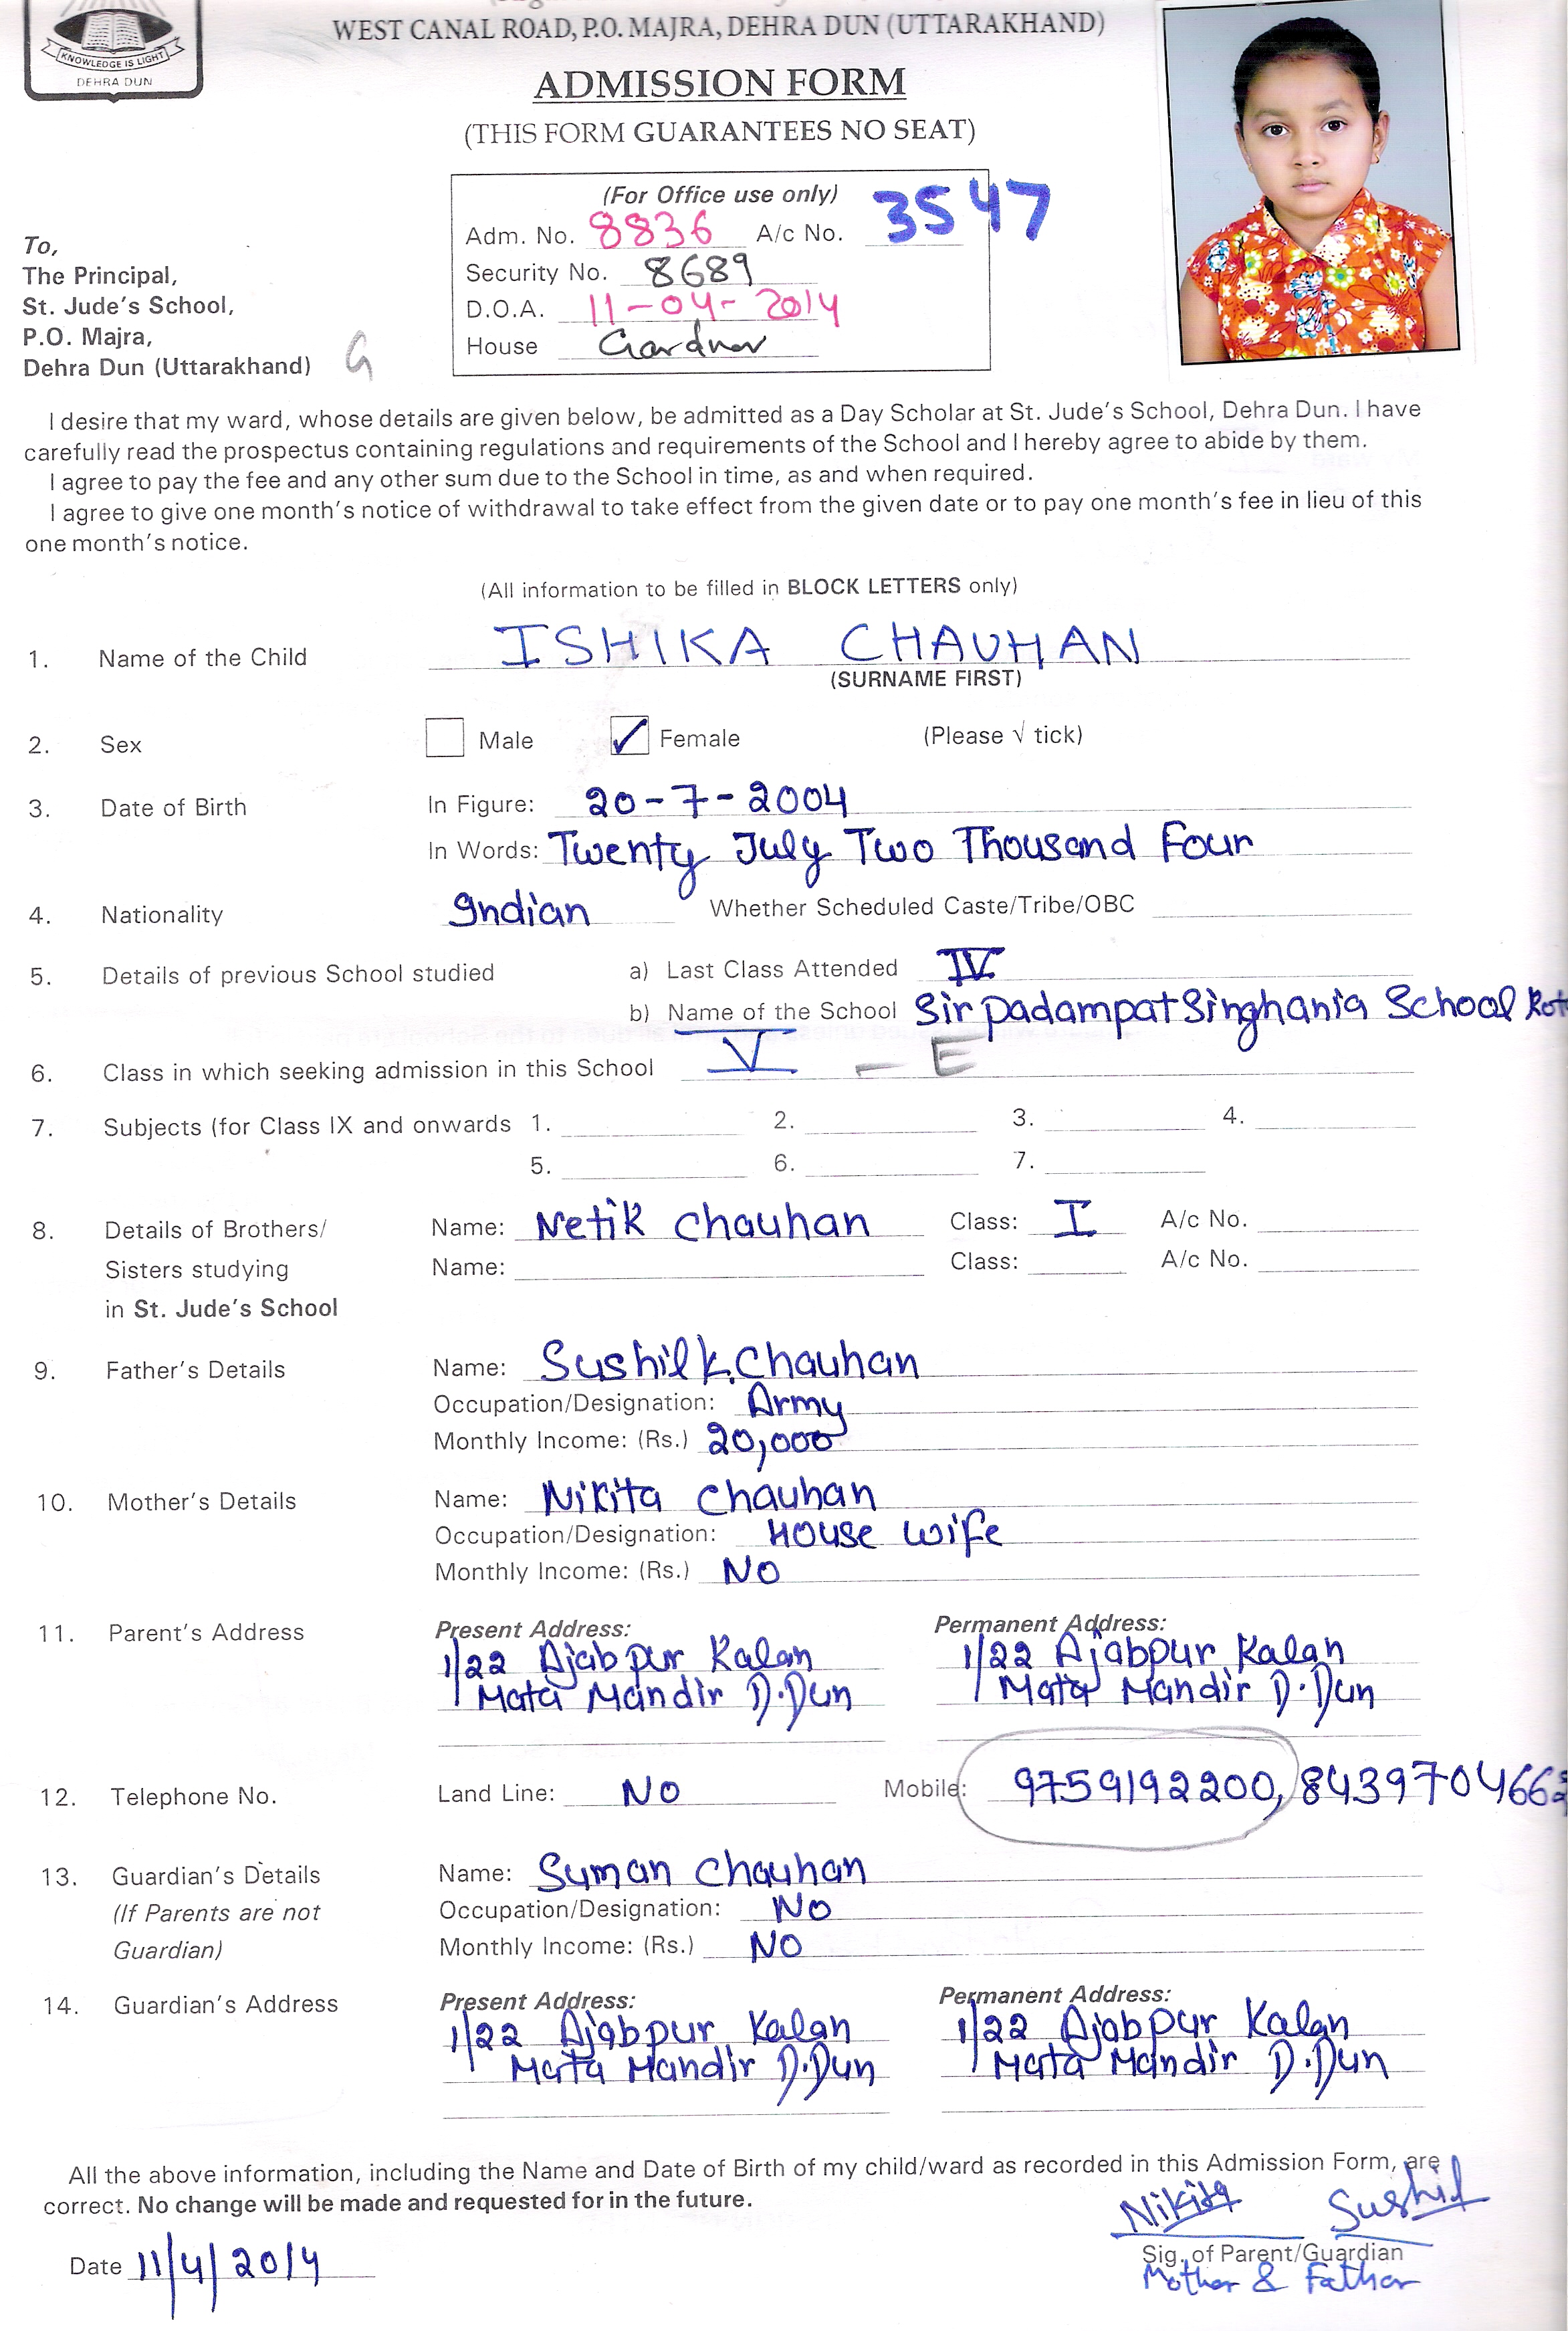 KNOWLEDGE IS LIGHT
DEHRA DUN
WEST CANAL ROAD, P.O. MAJRA, DEHRA DUN (UTTARAKHAND)
ADMISSION FORM
(THIS FORM GUARANTEES NO SEAT)
(For Office use only)
Adm. No. 8836 A/c No. 3547
Security No. 8689
D.O.A. 11-04-2014
House Gardner
To,
The Principal,
St. Jude's School,
P.O. Majra,
Dehra Dun (Uttarakhand) G
I desire that my ward, whose details are given below, be admitted as a Day Scholar at St. Jude's School, Dehra Dun. I have
carefully read the prospectus containing regulations and requirements of the School and I hereby agree to abide by them.
I agree to pay the fee and any other sum due to the School in time, as and when required.
I agree to give one month's notice of withdrawal to take effect from the given date or to pay one month's fee in lieu of this
one month's notice.
(All information to be filled in BLOCK LETTERS only)
1. Name of the Child ISHIKA CHAUHAN
(SURNAME FIRST)
2. Sex Male ✓ Female (Please √ tick)
3. Date of Birth In Figure: 20-7-2004
In Words: Twenty July Two Thousand Four
4. Nationality Indian Whether Scheduled Caste/Tribe/OBC
5. Details of previous School studied a) Last Class Attended IV
b) Name of the School Sir Padampat Singhania School
6. Class in which seeking admission in this School V - E
7. Subjects (for Class IX and onwards 1. 2. 3. 4.
5. 6. 7.
8. Details of Brothers/ Name: Netik Chauhan Class: I A/c No.
Sisters studying Name: Class: A/c No.
in St. Jude's School
9. Father's Details Name: Sushil K. Chauhan
Occupation/Designation: Army
Monthly Income: (Rs.) 20,000
10. Mother's Details Name: Nikita Chauhan
Occupation/Designation: House wife
Monthly Income: (Rs.) NO
11. Parent's Address Present Address: Permanent Address:
1/22 Ajabpur Kalan 1/22 Ajabpur Kalan
Mata Mandir D.Dun Mata Mandir D.Dun
12. Telephone No. Land Line: NO Mobile: 9759192200, 843970466
13. Guardian's Details Name: Suman Chauhan
(If Parents are not Occupation/Designation: NO
Guardian) Monthly Income: (Rs.) NO
14. Guardian's Address Present Address: Permanent Address:
1/22 Ajabpur Kalan 1/22 Ajabpur Kalan
Mata Mandir D.Dun Mata Mandir D.Dun
All the above information, including the Name and Date of Birth of my child/ward as recorded in this Admission Form, are
correct. No change will be made and requested for in the future.
Nikita Sushil
Date 11/4/2014 Sig. of Parent/Guardian
Mother & Father